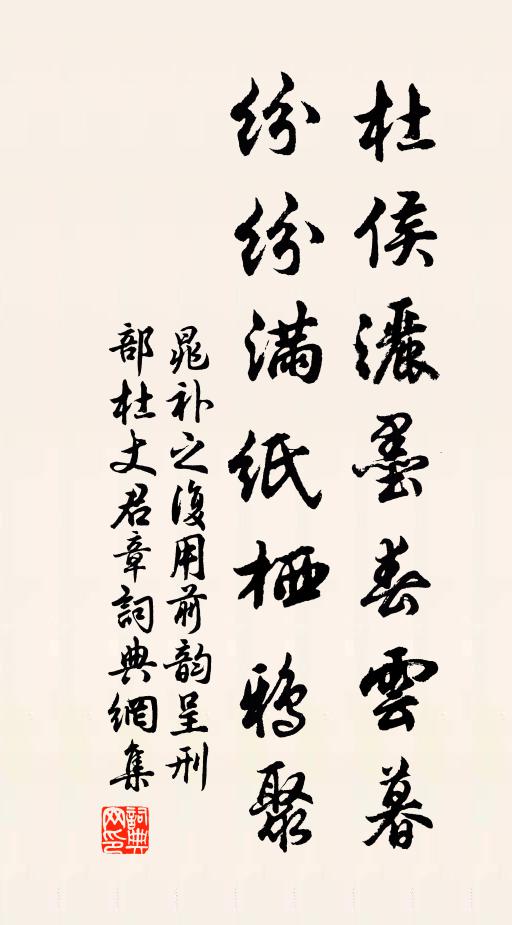 杜侯灑墨春雲暮
紛紛滿紙栖鴉聚
晁补之復用前韵呈刑
部杜丈君章詞典網集
詞典
网印